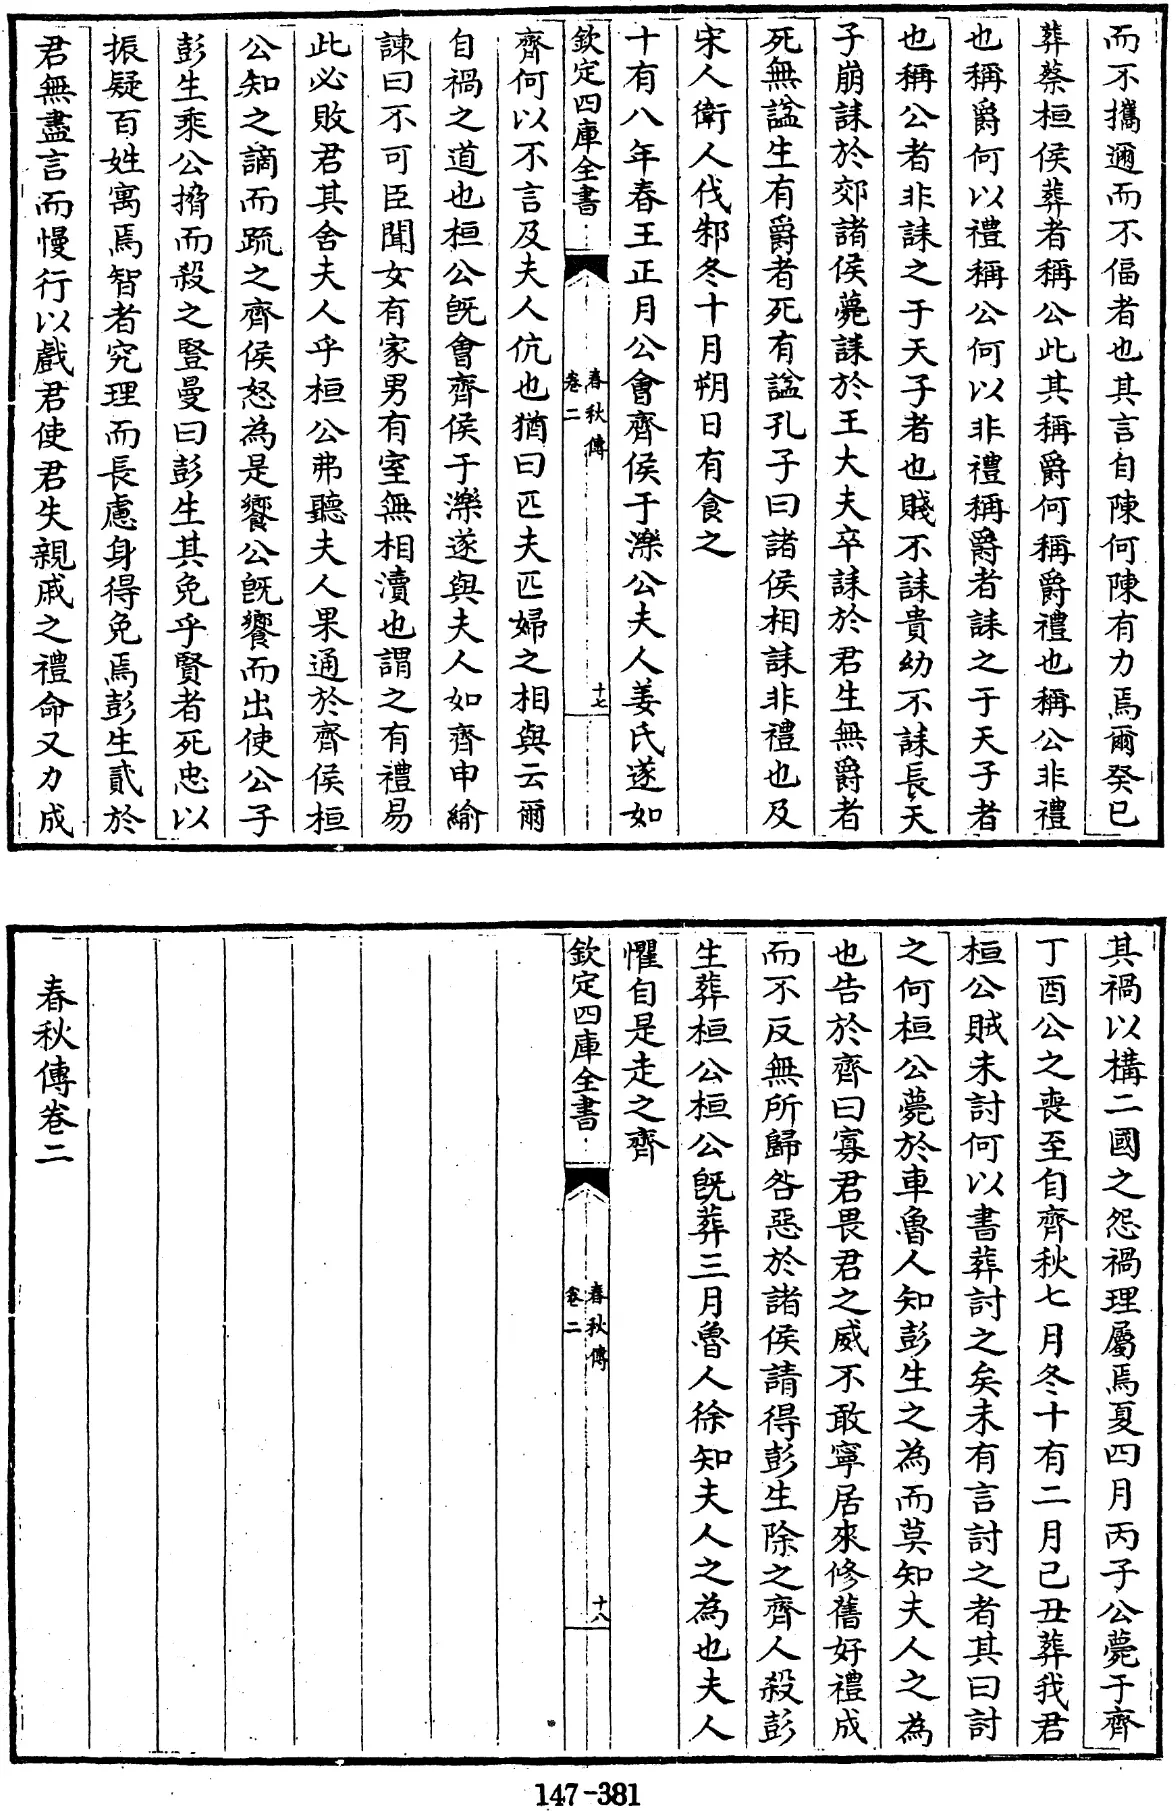 而不攜邇而不偪者也其言自陳何陳有力焉爾癸巳
葬蔡桓侯葬者稱公此其稱爵何稱爵禮也稱公非禮
也稱爵何以禮稱公何以非禮稱爵者誄之于天子者
也稱公者非誄之于天子者也賤不誄貴幼不誄長天
子崩誄於郊諸侯薨誄於王大夫卒誄於君生無爵者
死無諡生有爵者死有諡孔子曰諸侯相誄非禮也及
宋人衛人伐邾冬十月朔日有食之
十有八年春王正月公會齊侯于濼公夫人姜氏遂如
欽定四庫全書
春秋傳
卷二
十七
齊何以不言及夫人伉也猶曰匹夫匹婦之相與云爾
自禍之道也桓公旣會齊侯于濼遂與夫人如齊申繻
諫曰不可臣聞女有家男有室無相瀆也謂之有禮易
此必敗君其舍夫人乎桓公弗聽夫人果通於齊侯桓
公知之謫而疏之齊侯怒為是饗公旣饗而出使公子
彭生乘公搚而殺之豎曼曰彭生其免乎賢者死忠以
振疑百姓寓焉智者究理而長慮身得免焉彭生貳於
君無盡言而慢行以戲君使君失親戚之禮命又力成
其禍以構二國之怨禍理屬焉夏四月丙子公薨于齊
丁酉公之喪至自齊秋七月冬十有二月己丑葬我君
桓公賊未討何以書葬討之矣未有言討之者其曰討
之何桓公薨於車魯人知彭生之為而莫知夫人之為
也告於齊曰寡君畏君之威不敢寧居來修舊好禮成
而不反無所歸咎惡於諸侯請得彭生除之齊人殺彭
生葬桓公桓公旣葬三月魯人徐知夫人之為也夫人
懼自是走之齊
欽定四庫全書
春秋傳
卷二
十八
春秋傳卷二
147-381